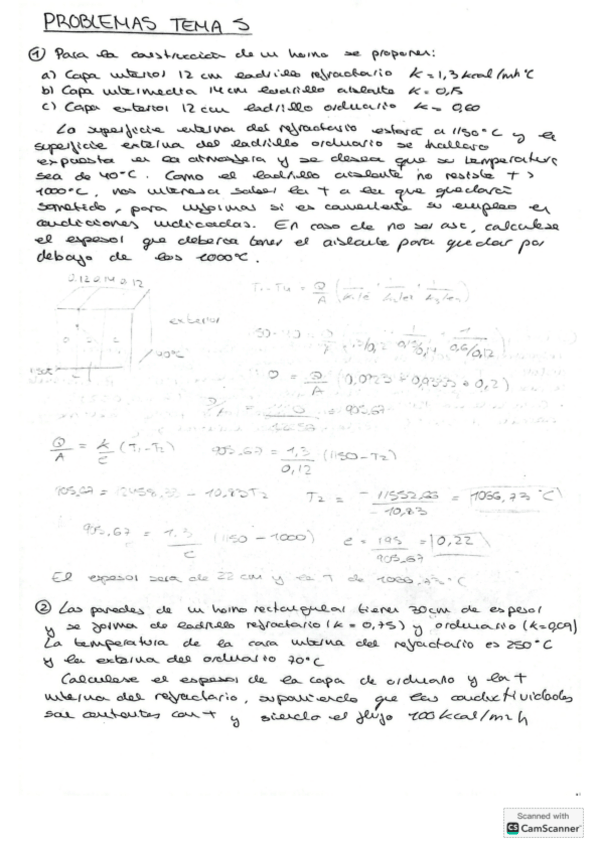 PROBLEMAS TEMA 5
① Para la construccion de un horno se proponen:
a) Capa interior 12 cm ladrillo refractario K = 1,3 kcal/mh°C
b) Capa intermedia 14 cm ladrillo aislante K = 0,15
c) Capa exterior 12 cm ladrillo ordinario K = 0,60
La superficie externa del refractario estará a 1150°C y la
superficie externa del ladrillo ordinario se hallara
expuesta en la atmosfera y se desea que su temperatura
sea de 40°C. Como el ladrillo aislante no resiste T >
1000°C, nos interesa saber la T a la que quedará
sometido, para si es conveniente su empleo en
condiciones indicadas. En caso de no ser asi, calculese
el espesor que deberia tener el aislante para quedar por
debajo de los 1000°C.
0.12 0.14 0.12
T1-T4 = Q/A
exterior
40°C
= Q/A (0,0923 + 0,9333 + 0,2)
= 905,67
Q/A = K/e (T1-T2) 905,67 = 1,3/0,12 (1150-T2)
905,67 = 12458,33 - 10,83T2 T2 = = 1066,73°C
905,67 = 1,3/e (1150 - 1000) e = 195/905,67 = 0,22
El espesor sera de 22 cm y la T de 1066,73°C
② Las paredes de un horno rectangular tienen 30cm de espesor
y se forma de ladrillo refractario (k = 0,75) y ordinario (k=0,09)
La temperatura de la cara interna del refractario es 250°C
y la externa del ordinario 70°C
Calculese el espesor de la capa de ordinario y la T
interna del refractario, suponiendo que las conductividades
son con T y siendo el flujo 100 kcal/m2h
Scanned with
CS CamScanner